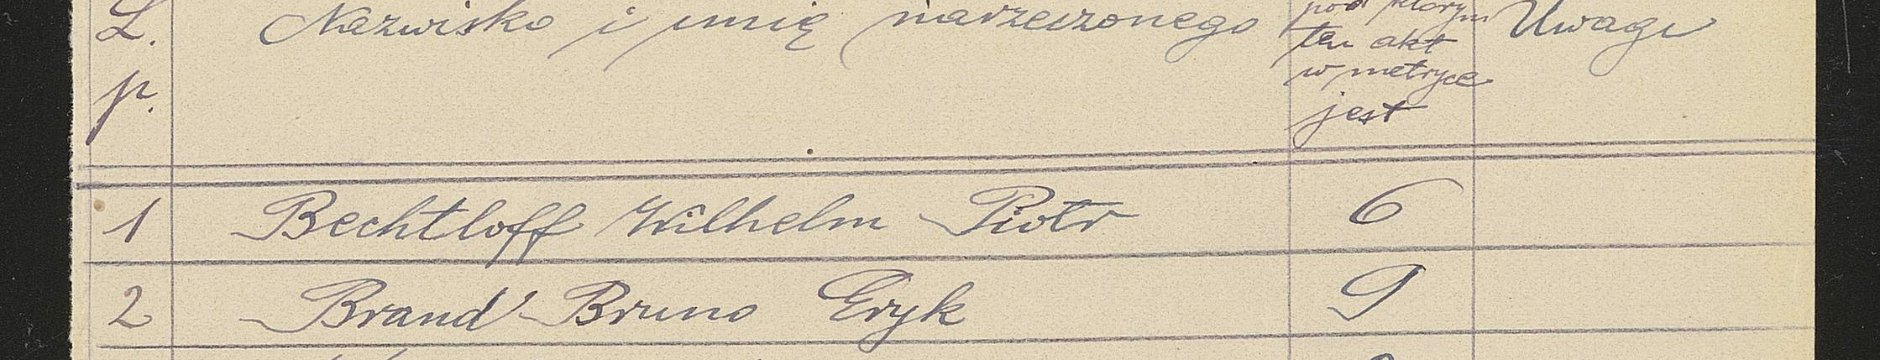 L. Nazwisko i imię narzeczonego pod którym Uwagi
ten akt
p. w metryce
jest
1 Bechtloff Wilhelm Piotr 6
2 Brand Bruno Eryk 9